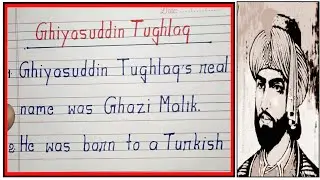 Ghiyasuddin Tughlaq
1 Ghiyasuddin Tughlaq's real
name was Ghazi Malik.
2 He was born to a Turkish